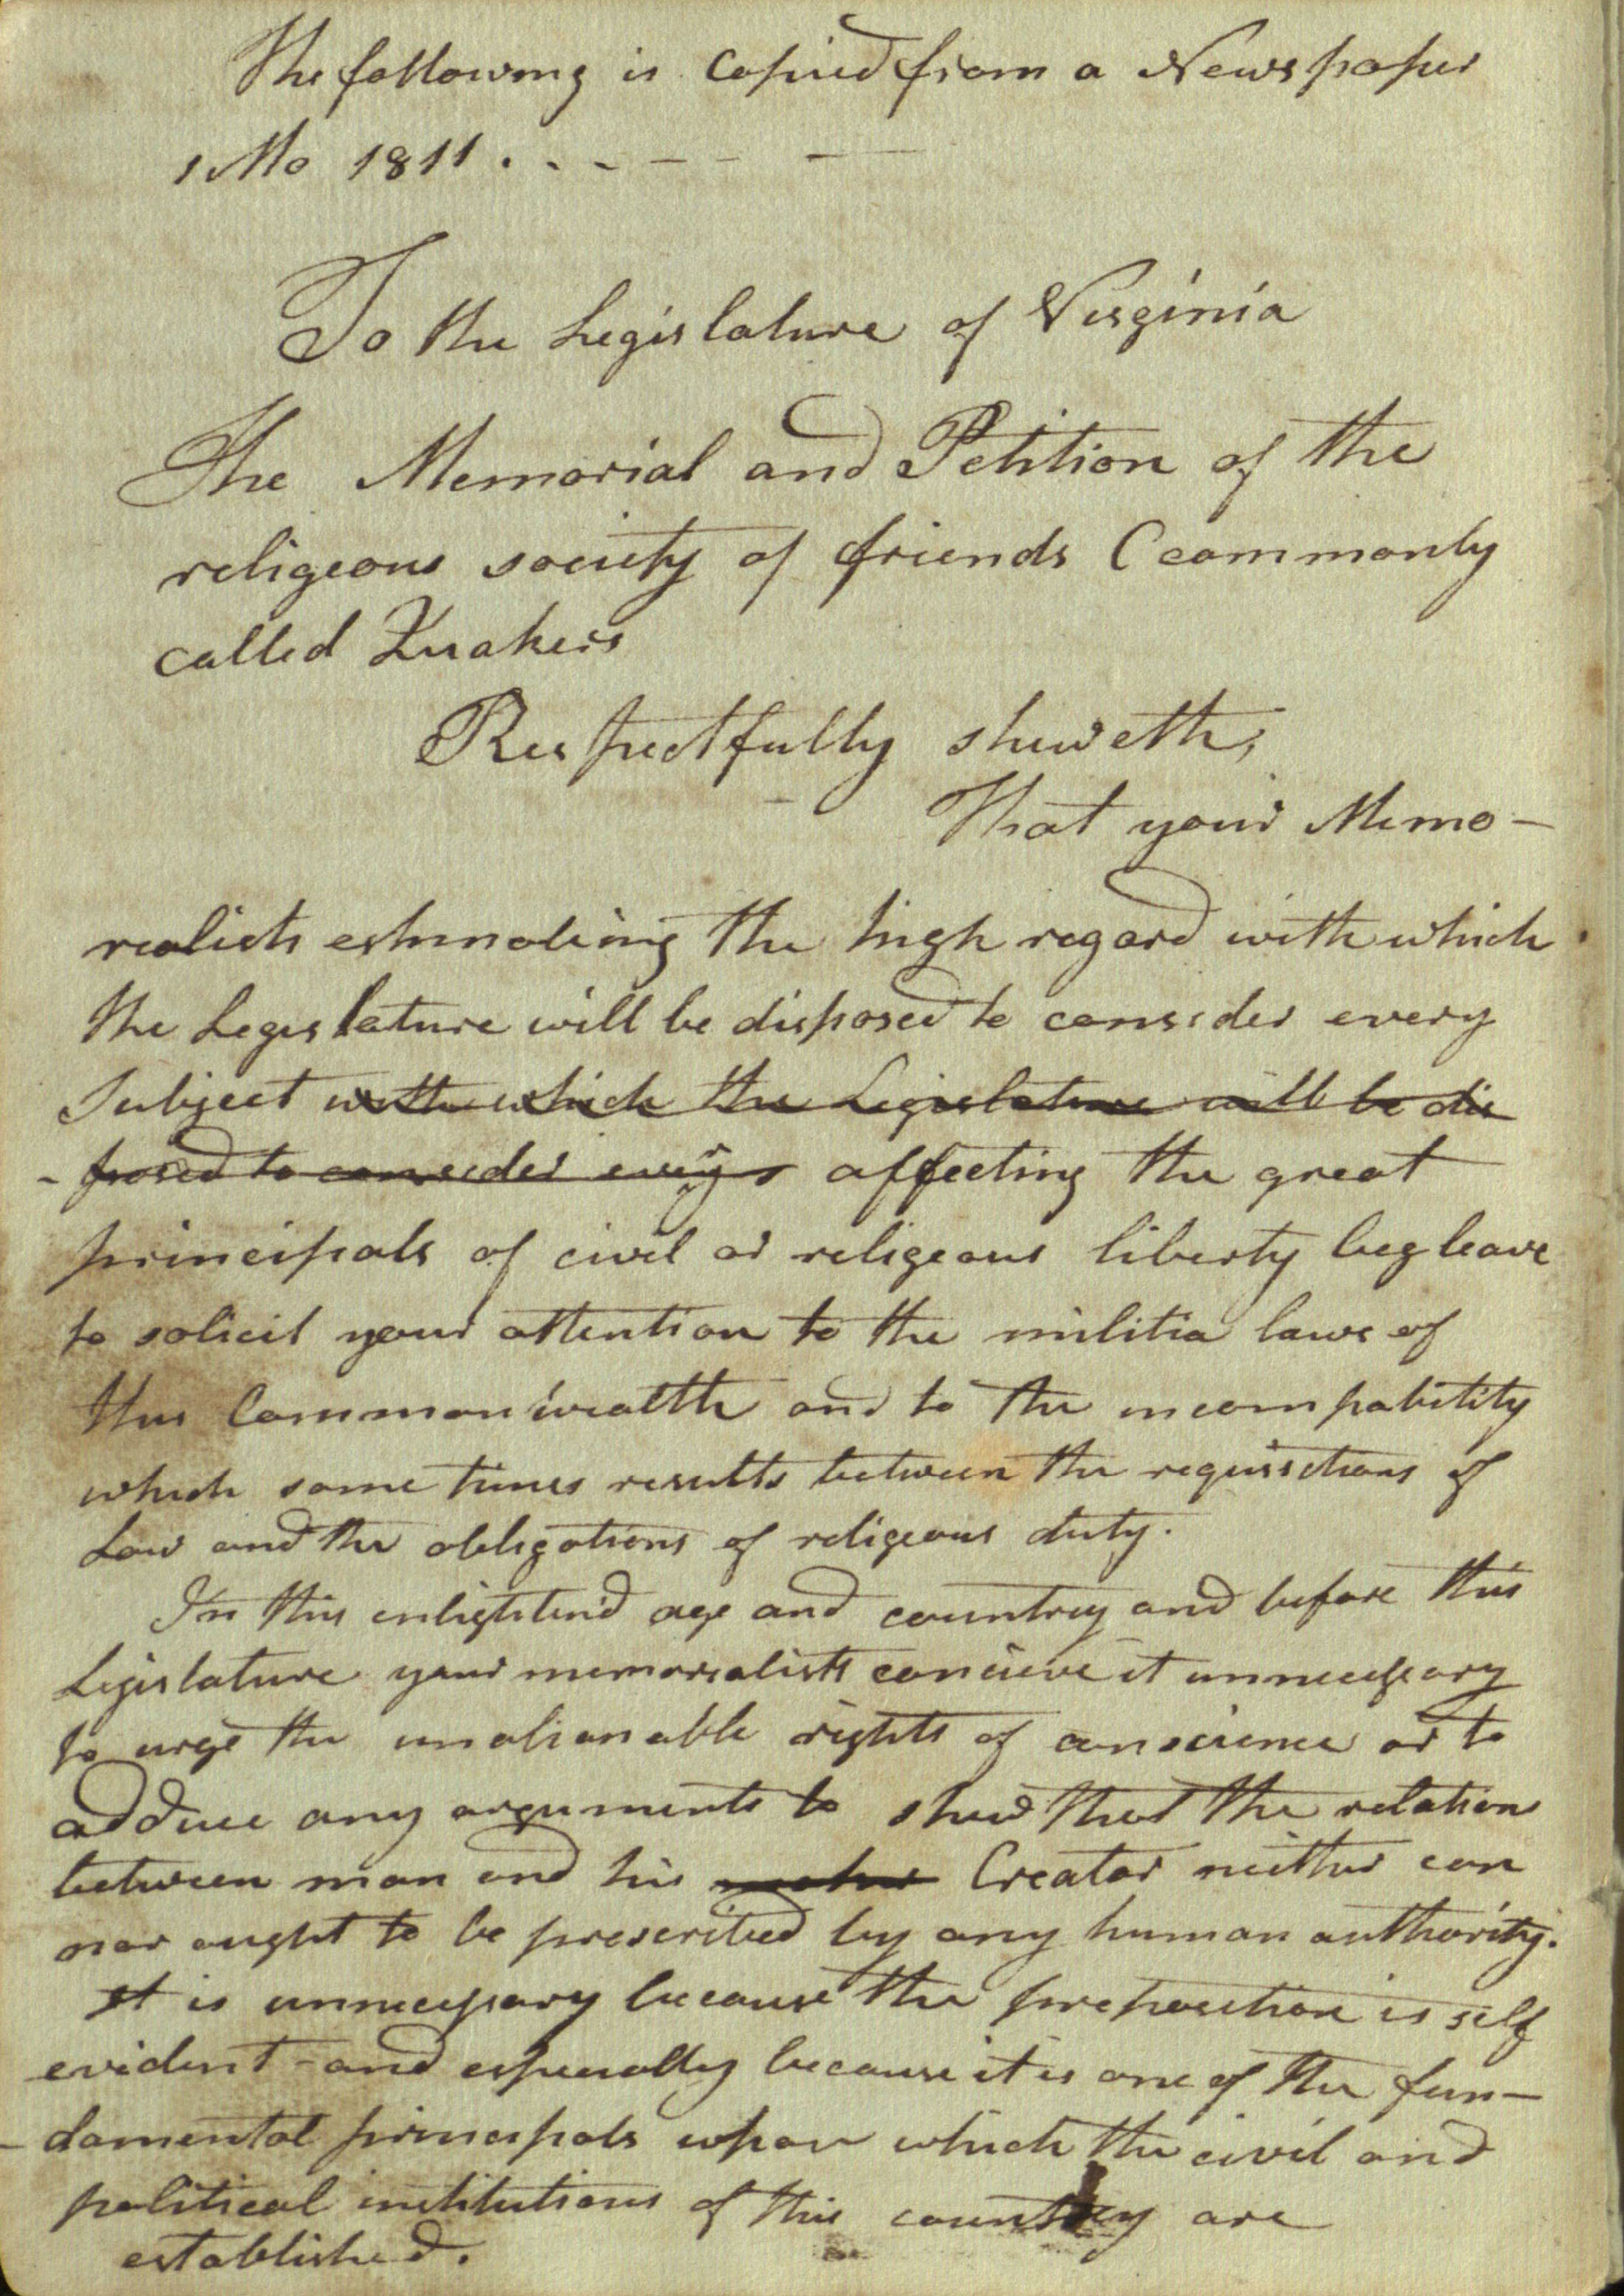 The following is Copied from a Newspaper
1 Mo 1811 . . . - - - -
To the Legislature of Virginia
The Memorial and Petition of the
religeous society of friends (commonly
called Quakers
Respectfully sheweth,
That your Memo-
realists estimateing the high regard with which
the Legislature will be disposed to consider every
Subject with which the Legislature will be dis
-posed to consider every affecting the great
principals of civil or religeous liberty beg leave
to solicit your attention to the militia laws of
this Commonwealth and to the incompatibility
which some times results between the requisitions of
Law and the obligations of religeous duty.
In this enlighten'd age and country and before this
Legislature your memorialists concieve it unnecessary
to urge the unalianable rights of conscience or to
adduce any arguments to shew that the relation
between man and his maker Creator neither can
nor ought to be prescribed by any human authority.
It is unnecessary because the preposition is self
evident - and especially because it is one of the fun-
-damental principals upon which the civil and
political institutions of this country are
established.